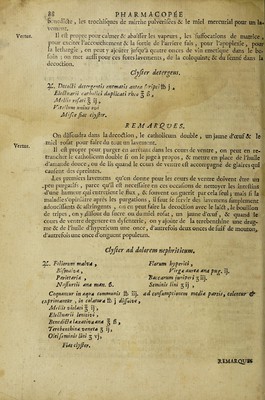 88 PHARMACOPÉE
benedicte, les trochisques de mirrhe pulverisées & le miel mercurial pour un lavement.
Vertus. Il est propre pour calmer & abaisser les vapeurs, les suffocations de matrice,
pour exciter l'accouchement & la sortie de l'arriere faix, pour l'apoplexie, pour
la lethargie, on peut y ajoûter jusqu'à quatre onces de vin emetique dans le besoin
; on met aussi pour ces sortes lavements, de la coloquinte & du senné dans la
decoction.
Clyster detergens.
℞. Decocti detergentis intestinis
Electuarii catholici duplicati rheo ℥
Mellis rosati ℥ ij,
Vitellum ovi
Misce fiat clyster.
REMARQUES.
On dissoudra dans la decoction, le catholicum double, un jaune d'œuf & le
miel rosat pour faire du tout un lavement.
Vertus. Il est propre pour purger & deterger dans les cours de ventre, on peut en retrancher
le catholicum double si on le juge à propos, & mettre en place de l'huile
d'amande douce, ou de si quand le cours de ventre est accompagné de glaires qui
causent des épreintes.
Les premiers lavements qu'on donne pour les cours de ventre doivent être un
peu purgatifs, parce qu'il est necessaire en ces occasions de nettoyer les intestins
d'une humeur qui entretient le flux, & souvent on guerit par cela seul; mais si la
maladie s'opiniâtre aprés les purgations, il faut se servir des lavemens simplement
adoucissants & astringents, on en peut faire la decoction avec le laict, le bouillon
de tripes, on y dissout du sucre ou du miel rosat, un jaune d'œuf, & quand le
cours de ventre degenere en dysenterie, on y ajoute de la terebenthine une dragme
& de l'huile d'hypericum une once, d'autrefois deux onces de suif de mouton,
d'autrefois une once d'onguent populeum.
Clyster ad dolorem nephriticum.
℞. Foliorum malvæ,
Bismalvæ,
Parietariæ,
Nasturtii ana man. ß.
Florum hyperici,
Virgæ aureæ ana pug. ij.
Baccarum juniperi ℥ iij.
Seminis lini ℥ ij,
Coquantur in aqua communis ℔ iij. ad consumptionem mediæ partis, coletur &
exprimantur, in colatura ℔ j dissolve,
Mellis violati ℥ ij,
Electuarii lenitivi,
Benedictæ laxativæ ana ℥ ß,
Terebenthinæ venetæ ℥ ij,
Olei seminis lini ℥ vj,
Fiat clyster.
REMARQUES